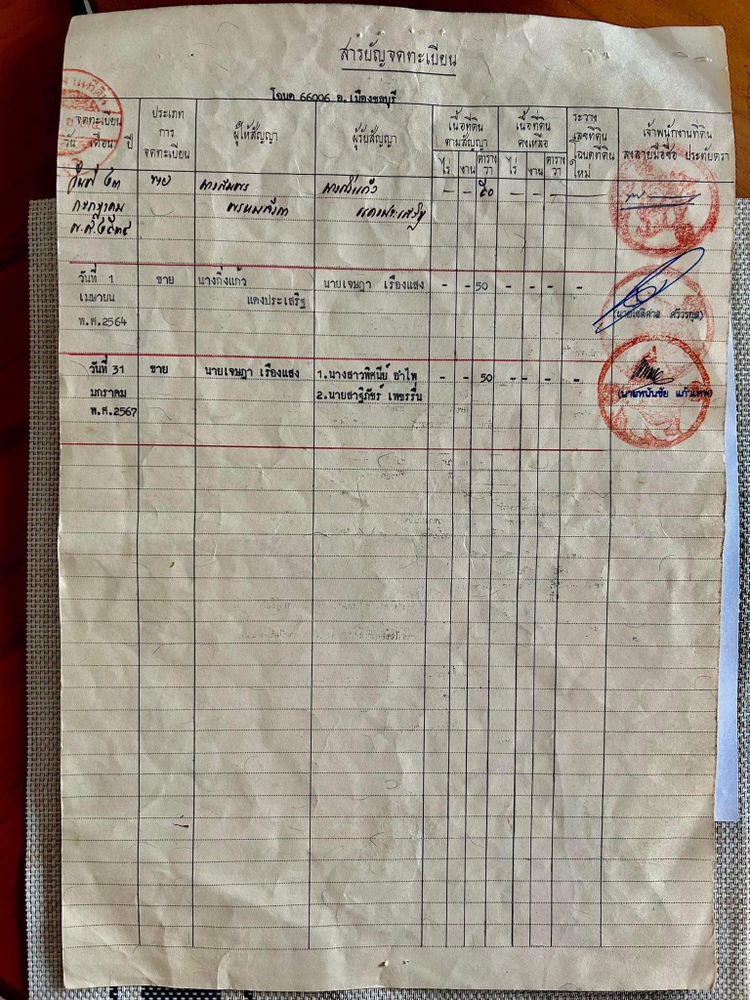 สารบัญจดทะเบียน
โฉนด 66006 อ. เมืองชลบุรี
จดทะเบียน
วัน เดือน ปี
ประเภท
การ
จดทะเบียน
ผู้ให้สัญญา
ผู้รับสัญญา
เนื้อที่ดิน
ตามสัญญา
ไร่ งาน ตาราง
วา
เนื้อที่ดิน
คงเหลือ
ไร่ งาน ตาราง
วา
ระวาง
เลขที่ดิน
โฉนดที่ดิน
ใหม่
เจ้าพนักงานที่ดิน
ลงลายมือชื่อ ประทับตรา
วันที่ ๒๓ ขาย
กรกฎาคม
พ.ศ. ๒๕๓๙
- - ๕๐ - - - -
วันที่ 1 ขาย นางกิ่งแก้ว นายเจษฎา เรืองแสง - - 50 - - - -
เมษายน แดงประเสริฐ
พ.ศ.2564
วันที่ 31 ขาย นายเจษฎา เรืองแสง 1.นางสาวพิศนีย์ อำไพ - - 50 - - - -
มกราคม 2.นายฮาฐิภัชร์ เพชรรื่น
พ.ศ.2567
(นายหนันชัย แก้วเทพ)